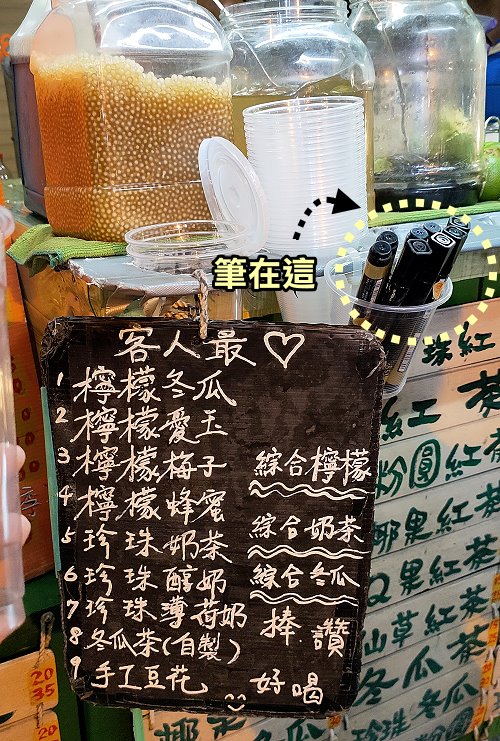 筆在這
客人最♡
1 檸檬冬瓜
2 檸檬愛玉
3 檸檬梅子
4 檸檬蜂蜜
5 珍珠奶茶
6 珍珠醇奶
7 珍珠薄荷奶
8 冬瓜茶(自製)
9 手工豆花
綜合檸檬
綜合奶茶
綜合冬瓜
捧.讚
好喝
珠紅
紅茶
粉圓紅
椰果紅茶
果紅茶
仙草紅茶
冬瓜茶
珍珠冬瓜
椰果
20
35
20